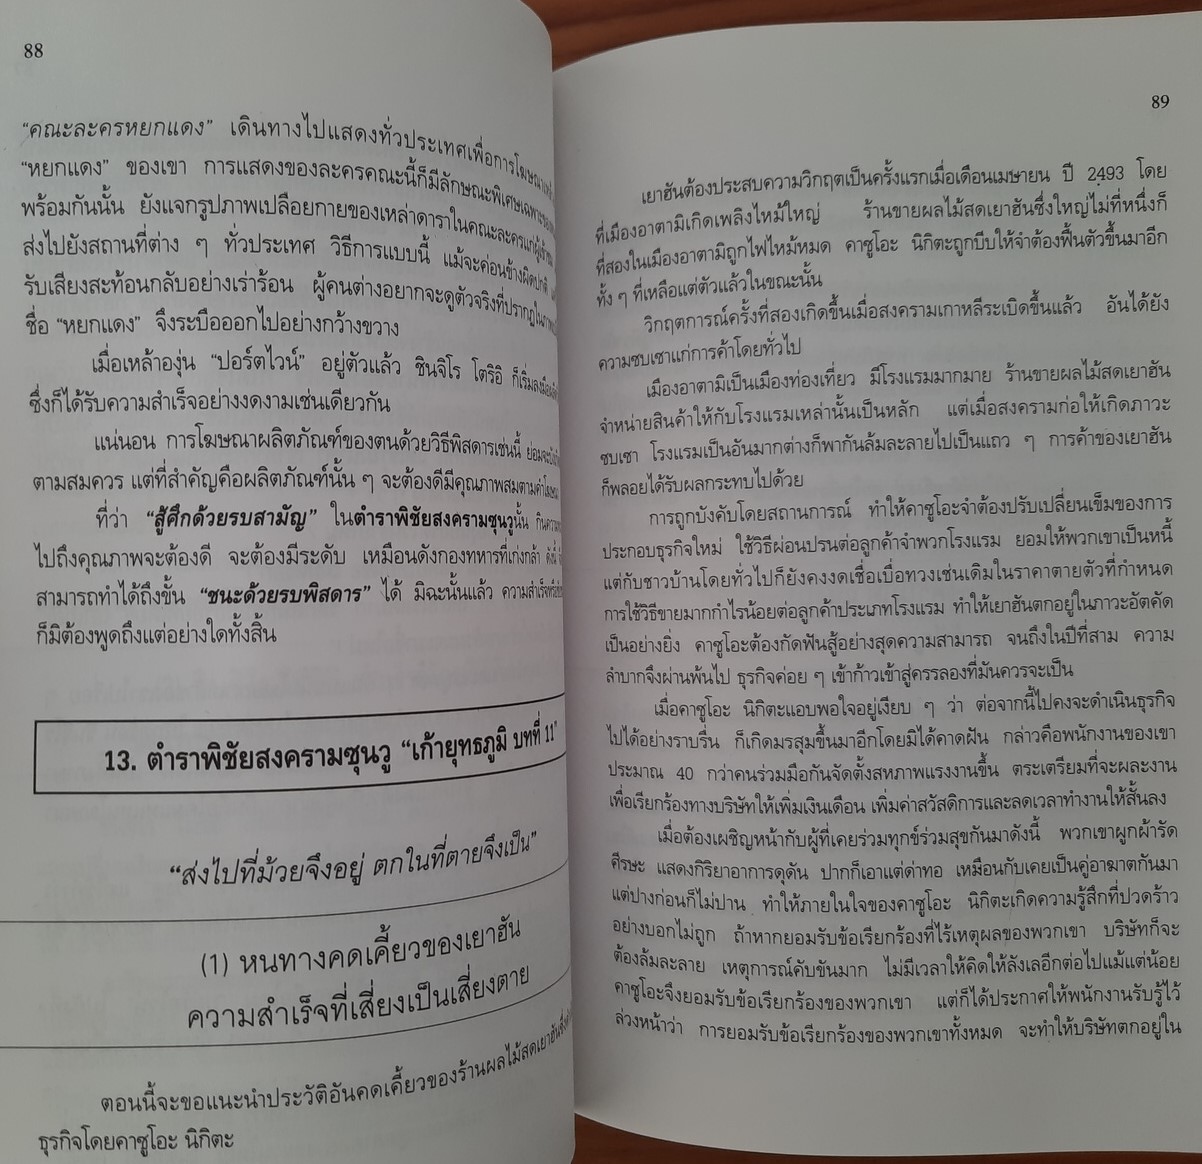 88
“คณะละครหยกแดง” เดินทางไปแสดงทั่วประเทศเพื่อการโฆษณาเหล้า
“หยกแดง” ของเขา การแสดงของละครคณะนี้ก็มีลักษณะพิเศษเฉพาะของ
พร้อมกันนั้น ยังแจกรูปภาพเปลือยกายของเหล่าดาราในคณะละครแก่ผู้เข้าชม
ส่งไปยังสถานที่ต่าง ๆ ทั่วประเทศ วิธีการแบบนี้ แม้จะค่อนข้างผิดปกติ
รับเสียงสะท้อนกลับอย่างเร่าร้อน ผู้คนต่างอยากจะดูตัวจริงที่ปรากฏในภาพ
ชื่อ “หยกแดง” จึงระบือออกไปอย่างกว้างขวาง
เมื่อเหล้าองุ่น “ปอร์ตไวน์” อยู่ตัวแล้ว ชินจิโร โตริอิ ก็เริ่มลง
ซึ่งก็ได้รับความสำเร็จอย่างงดงามเช่นเดียวกัน
แน่นอน การโฆษณาผลิตภัณฑ์ของตนด้วยวิธีพิสดารเช่นนี้ ย่อมจะ
ตามสมควร แต่ที่สำคัญคือผลิตภัณฑ์นั้น ๆ จะต้องดีมีคุณภาพสมตามคำโฆษณา
ที่ว่า “สู้ศึกด้วยรบสามัญ” ในตำราพิชัยสงครามซุนวูนั้น กินความ
ไปถึงคุณภาพจะต้องดี จะต้องมีระดับ เหมือนดังกองทหารที่เก่งกล้า ดังนี้
สามารถทำได้ถึงขั้น “ชนะด้วยรบพิสดาร” ได้ มิฉะนั้นแล้ว ความสำเร็จ
ก็มิต้องพูดถึงแต่อย่างใดทั้งสิ้น
13. ตำราพิชัยสงครามซุนวู “เก้ายุทธภูมิ บทที่ 11”
“ส่งไปที่ม้วยจึงอยู่ ตกในที่ตายจึงเป็น”
(1) หนทางคดเคี้ยวของเยาฮัน
ความสำเร็จที่เสี่ยงเป็นเสี่ยงตาย
ตอนนี้จะขอแนะนำประวัติอันคดเคี้ยวของร้านผลไม้สดเยาฮัน
ธุรกิจโดยคาซูโอะ นิกิตะ
89
เยาฮันต้องประสบความวิกฤตเป็นครั้งแรกเมื่อเดือนเมษายน ปี 2493 โดย
ที่เมืองอาตามิเกิดเพลิงไหม้ใหญ่ ร้านขายผลไม้สดเยาฮันซึ่งใหญ่ไม่ที่หนึ่งก็
ที่สองในเมืองอาตามิถูกไฟไหม้หมด คาซูโอะ นิกิตะถูกบีบให้จำต้องฟื้นตัวขึ้นมาอีก
ทั้ง ๆ ที่เหลือแต่ตัวแล้วในขณะนั้น
วิกฤตการณ์ครั้งที่สองเกิดขึ้นเมื่อสงครามเกาหลีระเบิดขึ้นแล้ว อันได้ยัง
ความซบเซาแก่การค้าโดยทั่วไป
เมืองอาตามิเป็นเมืองท่องเที่ยว มีโรงแรมมากมาย ร้านขายผลไม้สดเยาฮัน
จำหน่ายสินค้าให้กับโรงแรมเหล่านั้นเป็นหลัก แต่เมื่อสงครามก่อให้เกิดภาวะ
ซบเซา โรงแรมเป็นอันมากต่างก็พากันล้มละลายไปเป็นแถว ๆ การค้าของเยาฮัน
ก็พลอยได้รับผลกระทบไปด้วย
การถูกบังคับโดยสถานการณ์ ทำให้คาซูโอะจำต้องปรับเปลี่ยนเข็มของการ
ประกอบธุรกิจใหม่ ใช้วิธีผ่อนปรนต่อลูกค้าจำพวกโรงแรม ยอมให้พวกเขาเป็นหนี้
แต่กับชาวบ้านโดยทั่วไปก็ยังคงงดเชื่อเบื่อทวงเช่นเดิมในราคาตายตัวที่กำหนด
การใช้วิธีขายมากกำไรน้อยต่อลูกค้าประเภทโรงแรม ทำให้เยาฮันตกอยู่ในภาวะอัตคัด
เป็นอย่างยิ่ง คาซูโอะต้องกัดฟันสู้อย่างสุดความสามารถ จนถึงในปีที่สาม ความ
ลำบากจึงผ่านพ้นไป ธุรกิจค่อย ๆ เข้าก้าวเข้าสู่ครรลองที่มันควรจะเป็น
เมื่อคาซูโอะ นิกิตะแอบพอใจอยู่เงียบ ๆ ว่า ต่อจากนี้ไปคงจะดำเนินธุรกิจ
ไปได้อย่างราบรื่น ก็เกิดมรสุมขึ้นมาอีกโดยมิได้คาดฝัน กล่าวคือพนักงานของเขา
ประมาณ 40 กว่าคนร่วมมือกันจัดตั้งสหภาพแรงงานขึ้น ตระเตรียมที่จะผละงาน
เพื่อเรียกร้องทางบริษัทให้เพิ่มเงินเดือน เพิ่มค่าสวัสดิการและลดเวลาทำงานให้สั้นลง
เมื่อต้องเผชิญหน้ากับผู้ที่เคยร่วมทุกข์ร่วมสุขกันมาดังนี้ พวกเขาผูกผ้ารัด
ศีรษะ แสดงกิริยาอาการดุดัน ปากก็เอาแต่ด่าทอ เหมือนกับเคยเป็นคู่อาฆาตกันมา
แต่ปางก่อนก็ไม่ปาน ทำให้ภายในใจของคาซูโอะ นิกิตะเกิดความรู้สึกที่ปวดร้าว
อย่างบอกไม่ถูก ถ้าหากยอมรับข้อเรียกร้องที่ไร้เหตุผลของพวกเขา บริษัทก็จะ
ต้องล้มละลาย เหตุการณ์คับขันมาก ไม่มีเวลาให้คิดให้ลังเลอีกต่อไปแม้แต่น้อย
คาซูโอะจึงยอมรับข้อเรียกร้องของพวกเขา แต่ก็ได้ประกาศให้พนักงานรับรู้ไว้
ล่วงหน้าว่า การยอมรับข้อเรียกร้องของพวกเขาทั้งหมด จะทำให้บริษัทตกอยู่ใน